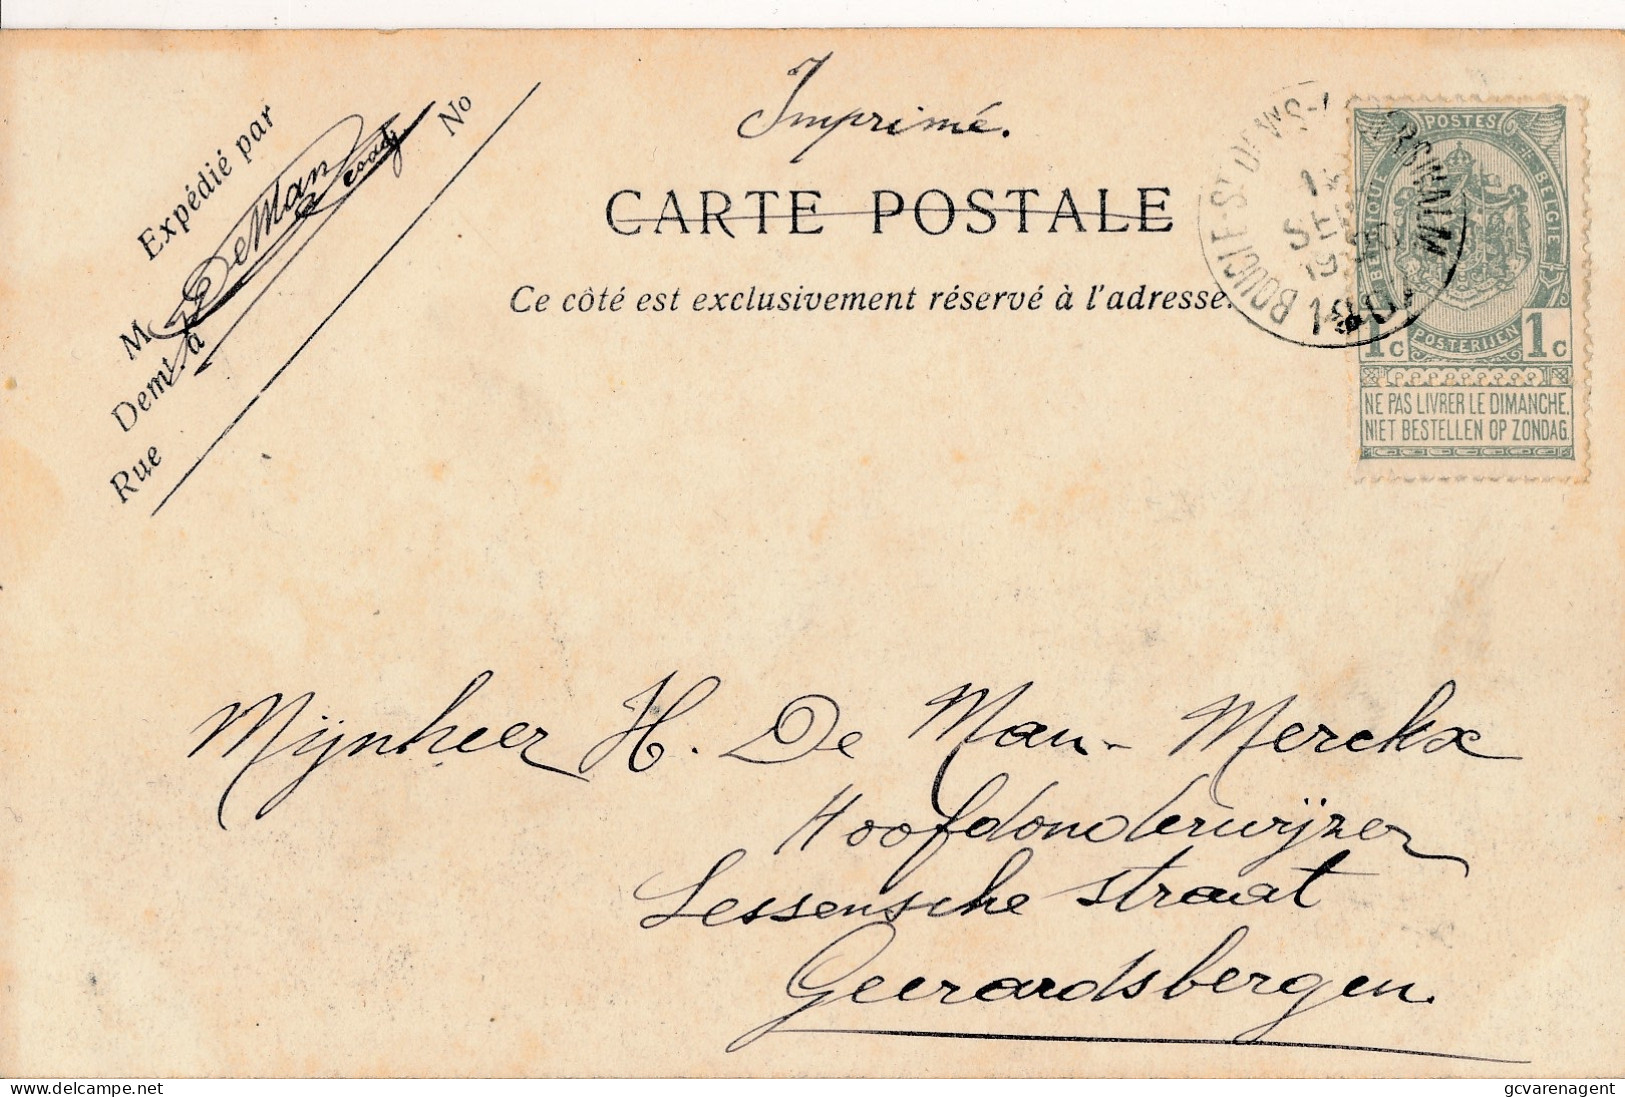 Imprimé.
CARTE POSTALE
Ce côté est exclusivement réservé à l'adresse.
Expédié par
M De Man
Demt à
Rue No
BOUCLE-ST DENIS-
SEPT
POSTES
BELGIQUE BELGIE
POSTERIJEN
1c 1c
NE PAS LIVRER LE DIMANCHE.
NIET BESTELLEN OP ZONDAG.
Mijnheer H. De Man-Merckx
Hoofdonderwijzer
Lessensche straat
Geerardsbergen.
gcvarenagent